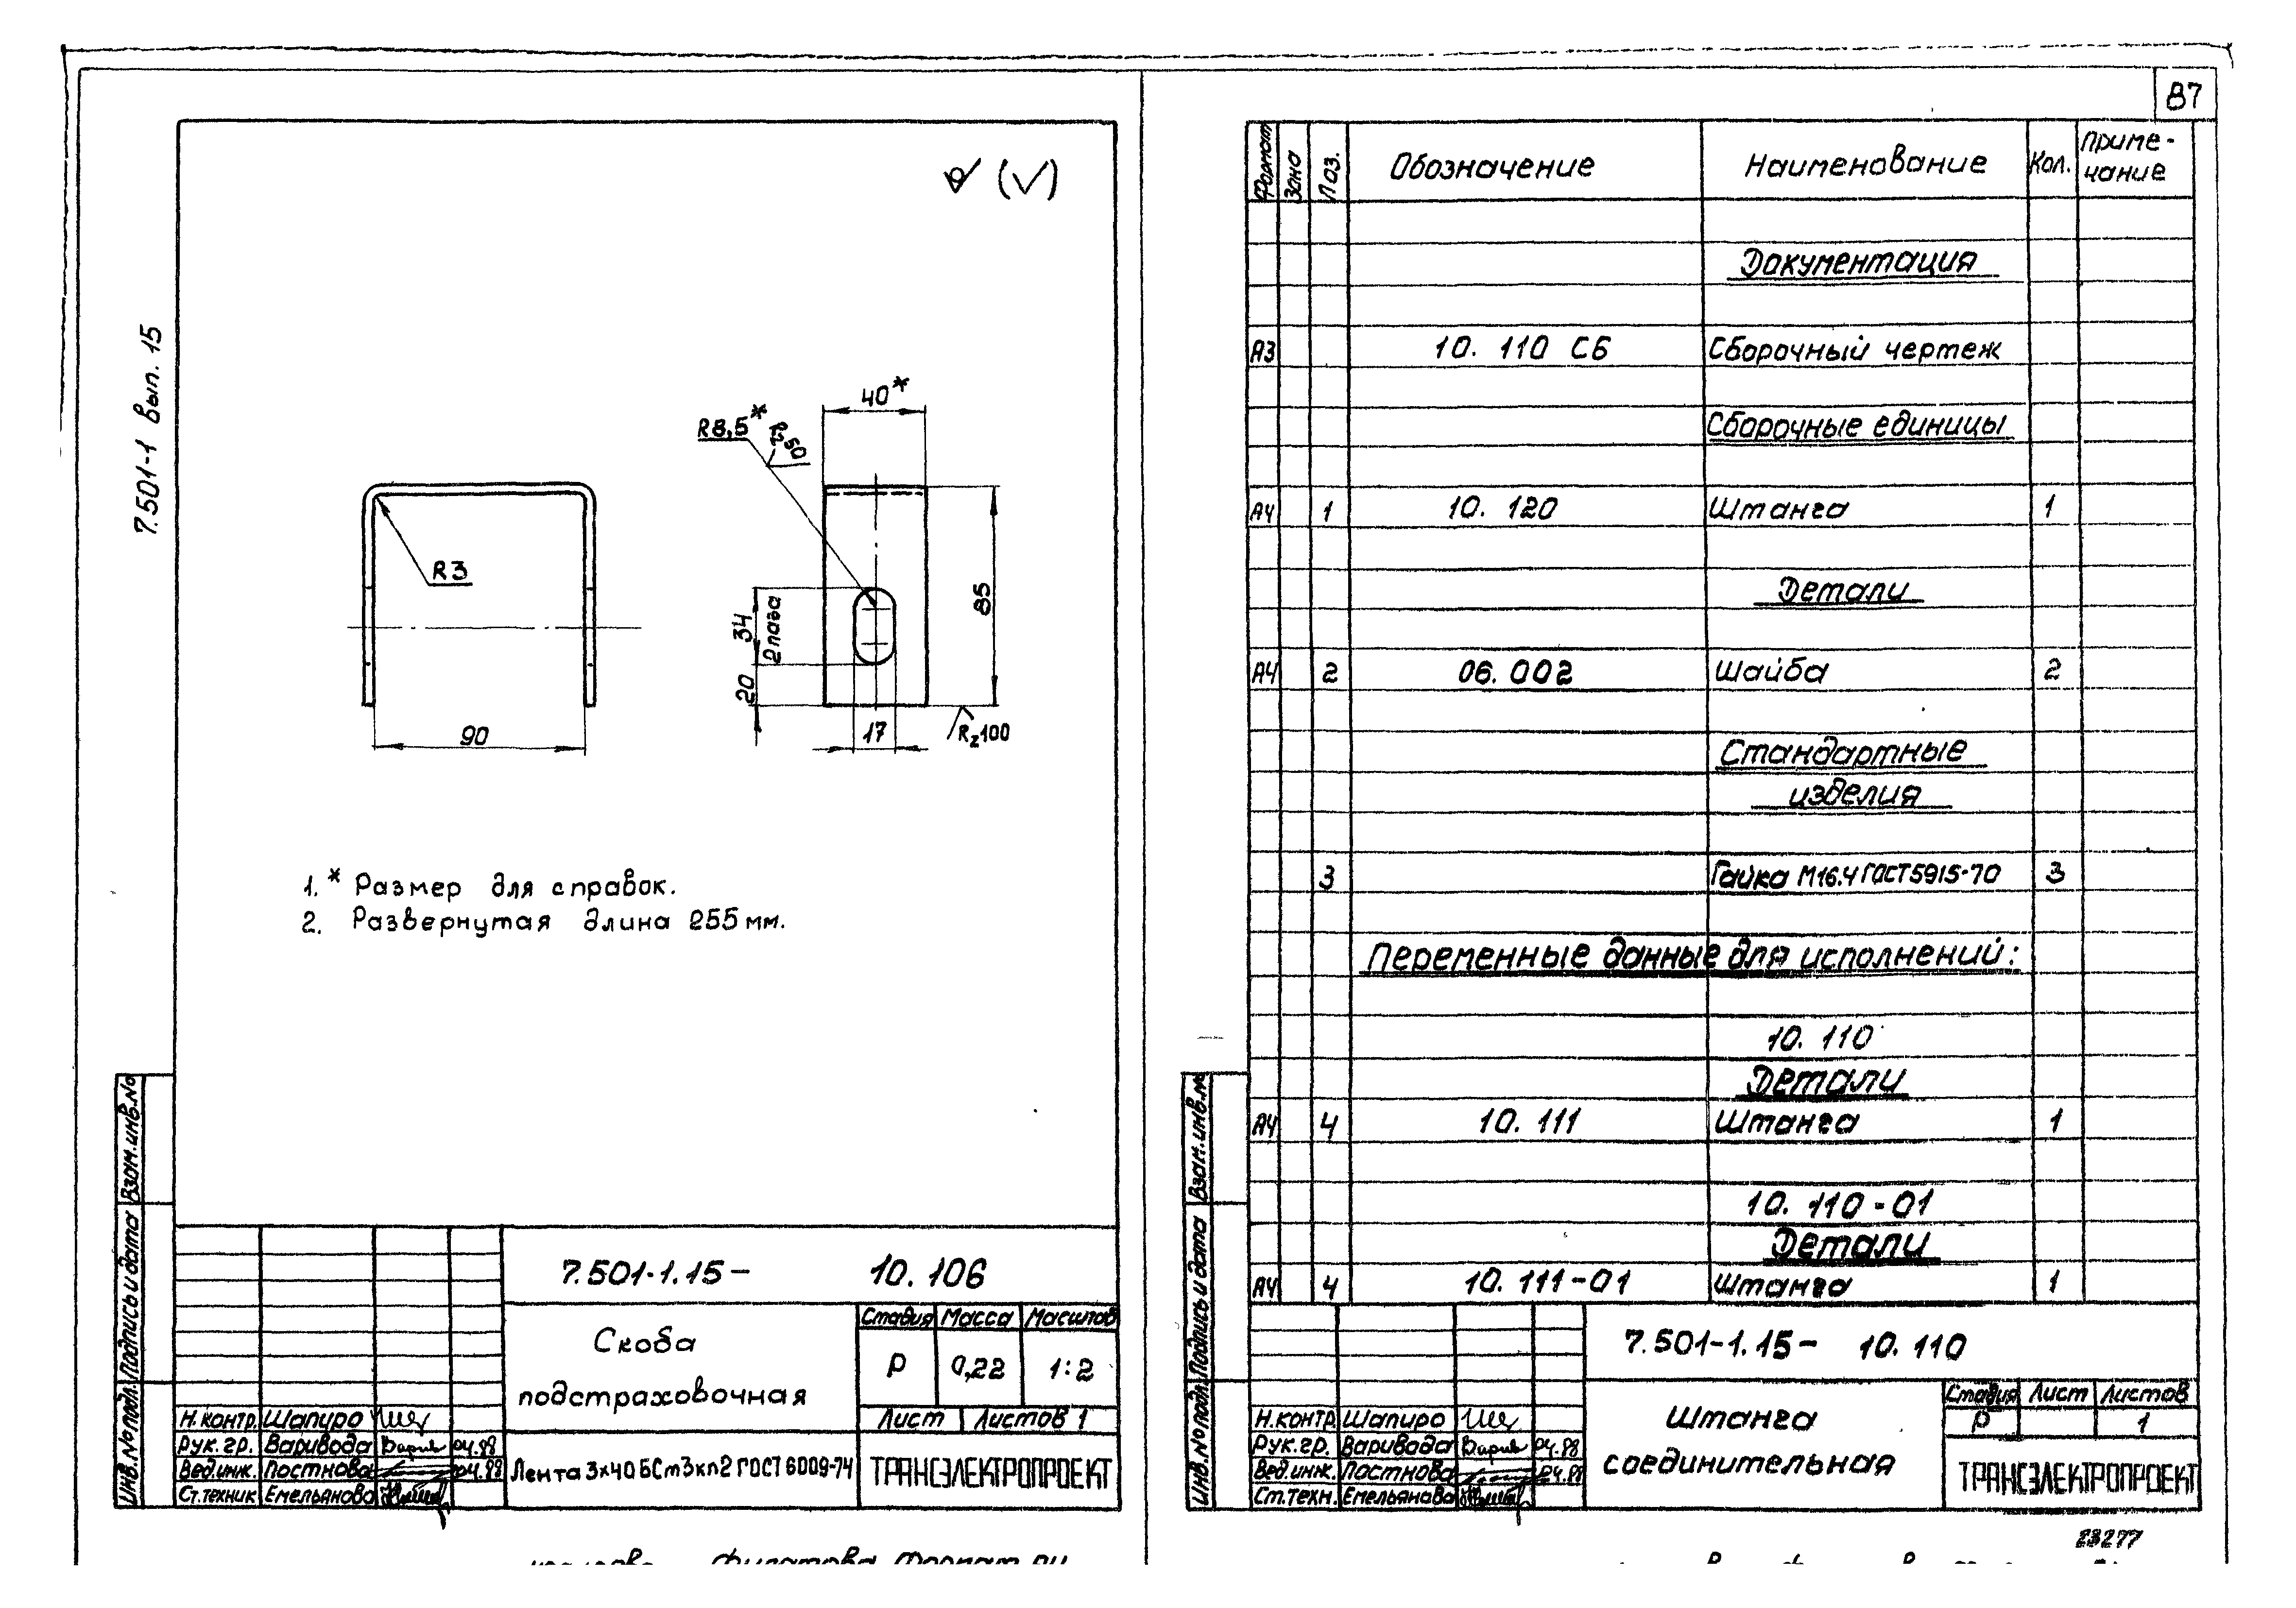 87
7.501-1 Вып. 15
(√)
R3
90
R8,5*
Rz50
40*
34
2 паза
20
85
17
Rz100
1. * Размер для справок.
2. Развернутая длина 255 мм.
Взам. инв. №
Подпись и дата
Инв. № подл.
7.501-1.15- 10.106
Скоба
подстраховочная
Стадия Масса Масштаб
Р 0,22 1:2
Лист Листов 1
Н.контр. Шапиро
Рук. гр. Варивода 04.88
Вед.инж. Постнова 04.88
Ст.техник Емельянова
Лента 3х40 БСт3кп2 ГОСТ 6009-74
ТРАНСЭЛЕКТРОПРОЕКТ
Филатова Формат А4
Формат Зона Поз. Обозначение Наименование Кол. Приме-
чание
Документация
А3 10. 110 СБ Сборочный чертеж
Сборочные единицы
А4 1 10. 120 Штанга 1
Детали
А4 2 06. 002 Шайба 2
Стандартные
изделия
3 Гайка М16.4 ГОСТ 5915-70 3
Переменные данные для исполнений:
10. 110
Детали
А4 4 10. 111 Штанга 1
10. 110-01
Детали
А4 4 10. 111-01 Штанга 1
Взам. инв. №
Подпись и дата
Инв. № подл.
7.501-1.15- 10.110
Штанга
соединительная
Стадия Лист Листов
Р 1
Н.контр. Шапиро
Рук. гр. Варивода 04.88
Вед.инж. Постнова 04.88
Ст.техн. Емельянова
ТРАНСЭЛЕКТРОПРОЕКТ
23277